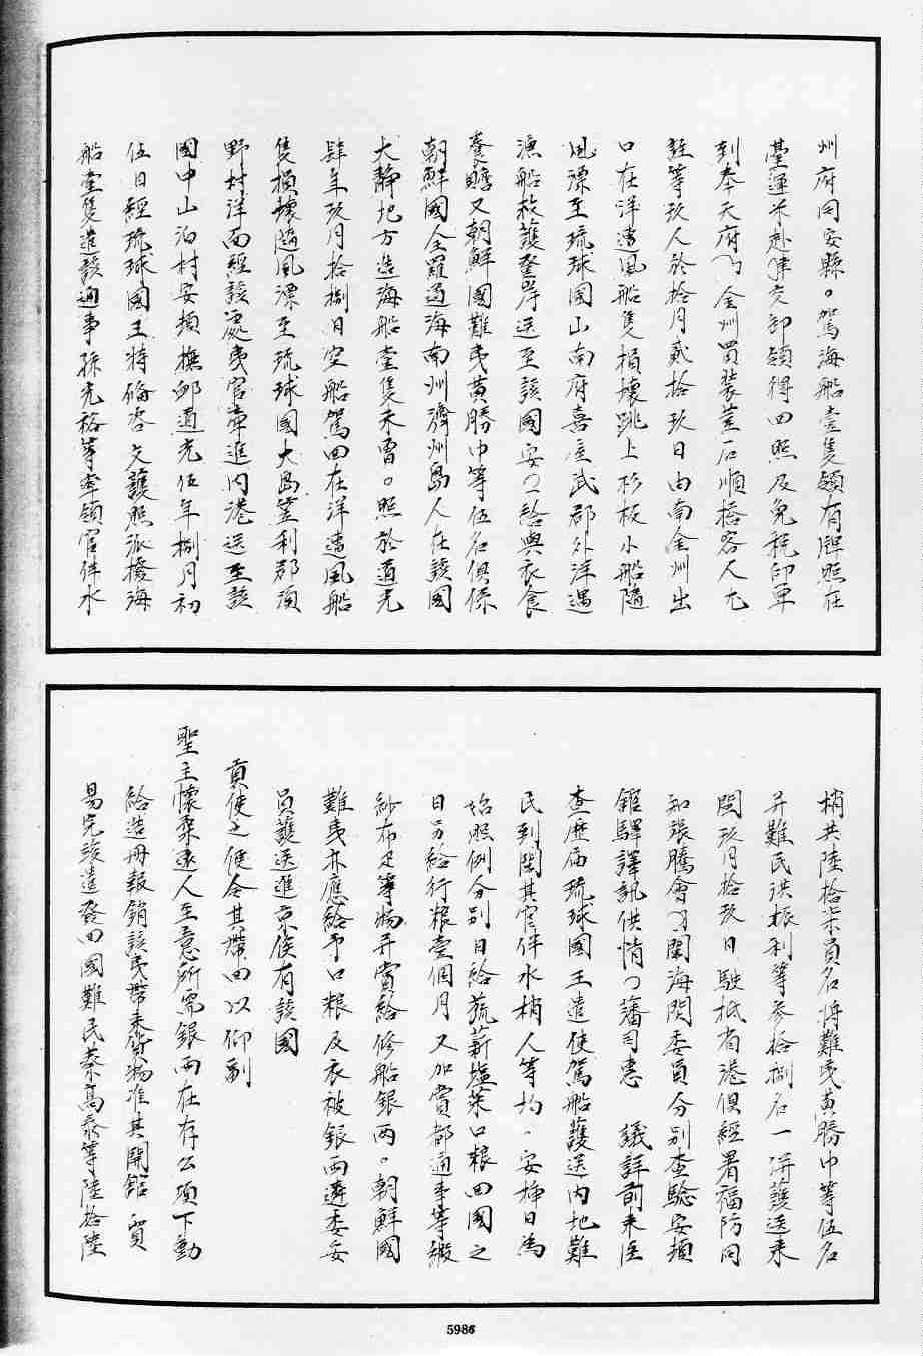 州府同安縣。駕海船壹隻領有牌照在
臺運米赴津交卸領得回照及免稅印單
到奉天府屬金州買裝荳石順搭客人尤
註等玖人於拾月貳拾玖日由南金州出
口在洋遭風船隻損壞跳上杉板小船隨
風漂至琉球國山南府喜屋武郡外洋遇
漁船救護登岸送至該國安插給與衣食
養贍又朝鮮國難夷黃勝巾等伍名俱係
朝鮮國全羅道海南州濟州島人在該國
大靜地方造海船壹隻未曾。照於道光
肆年玖月拾捌日空船駕回在洋遭風船
隻損壞隨風漂至琉球國大島笠利郡須
野村洋面經該處夷官牽進內港送至該
國中山泊村安頓撫卹道光伍年捌月初
伍日經琉球國王特備咨文護照派撥海
船壹隻遣該通事孫光裕等率領官伴水
梢共陸拾柒員名將難夷黃勝巾等伍名
并難民洪振利等叁拾捌名一併護送來
閩玖月拾玖日駛抵省港俱經署福防同
知張騰會同閩海關委員分別查驗安頓
館驛譯訊供情 藩司惠 議詳前來臣
查歷屆琉球國王遣使駕船護送內地難
民到閩其官伴水梢人等均。安插日為
始照例分別日給蔬薪塩菜口粮回國之
日另給行粮壹個月又加賞都通事等緞
紗布疋等物并賞給修船銀兩。朝鮮國
難夷亦應給予口粮及衣被銀兩遴委妥
員護送進京俟有該國
貢使之便令其帶回以仰副
聖主懷柔遠人至意所需銀兩在存公項下動
給造冊報銷該夷帶來貨物准其開館 貿
易完竣遣發回國難民蔡高泰等陸拾陸
5986